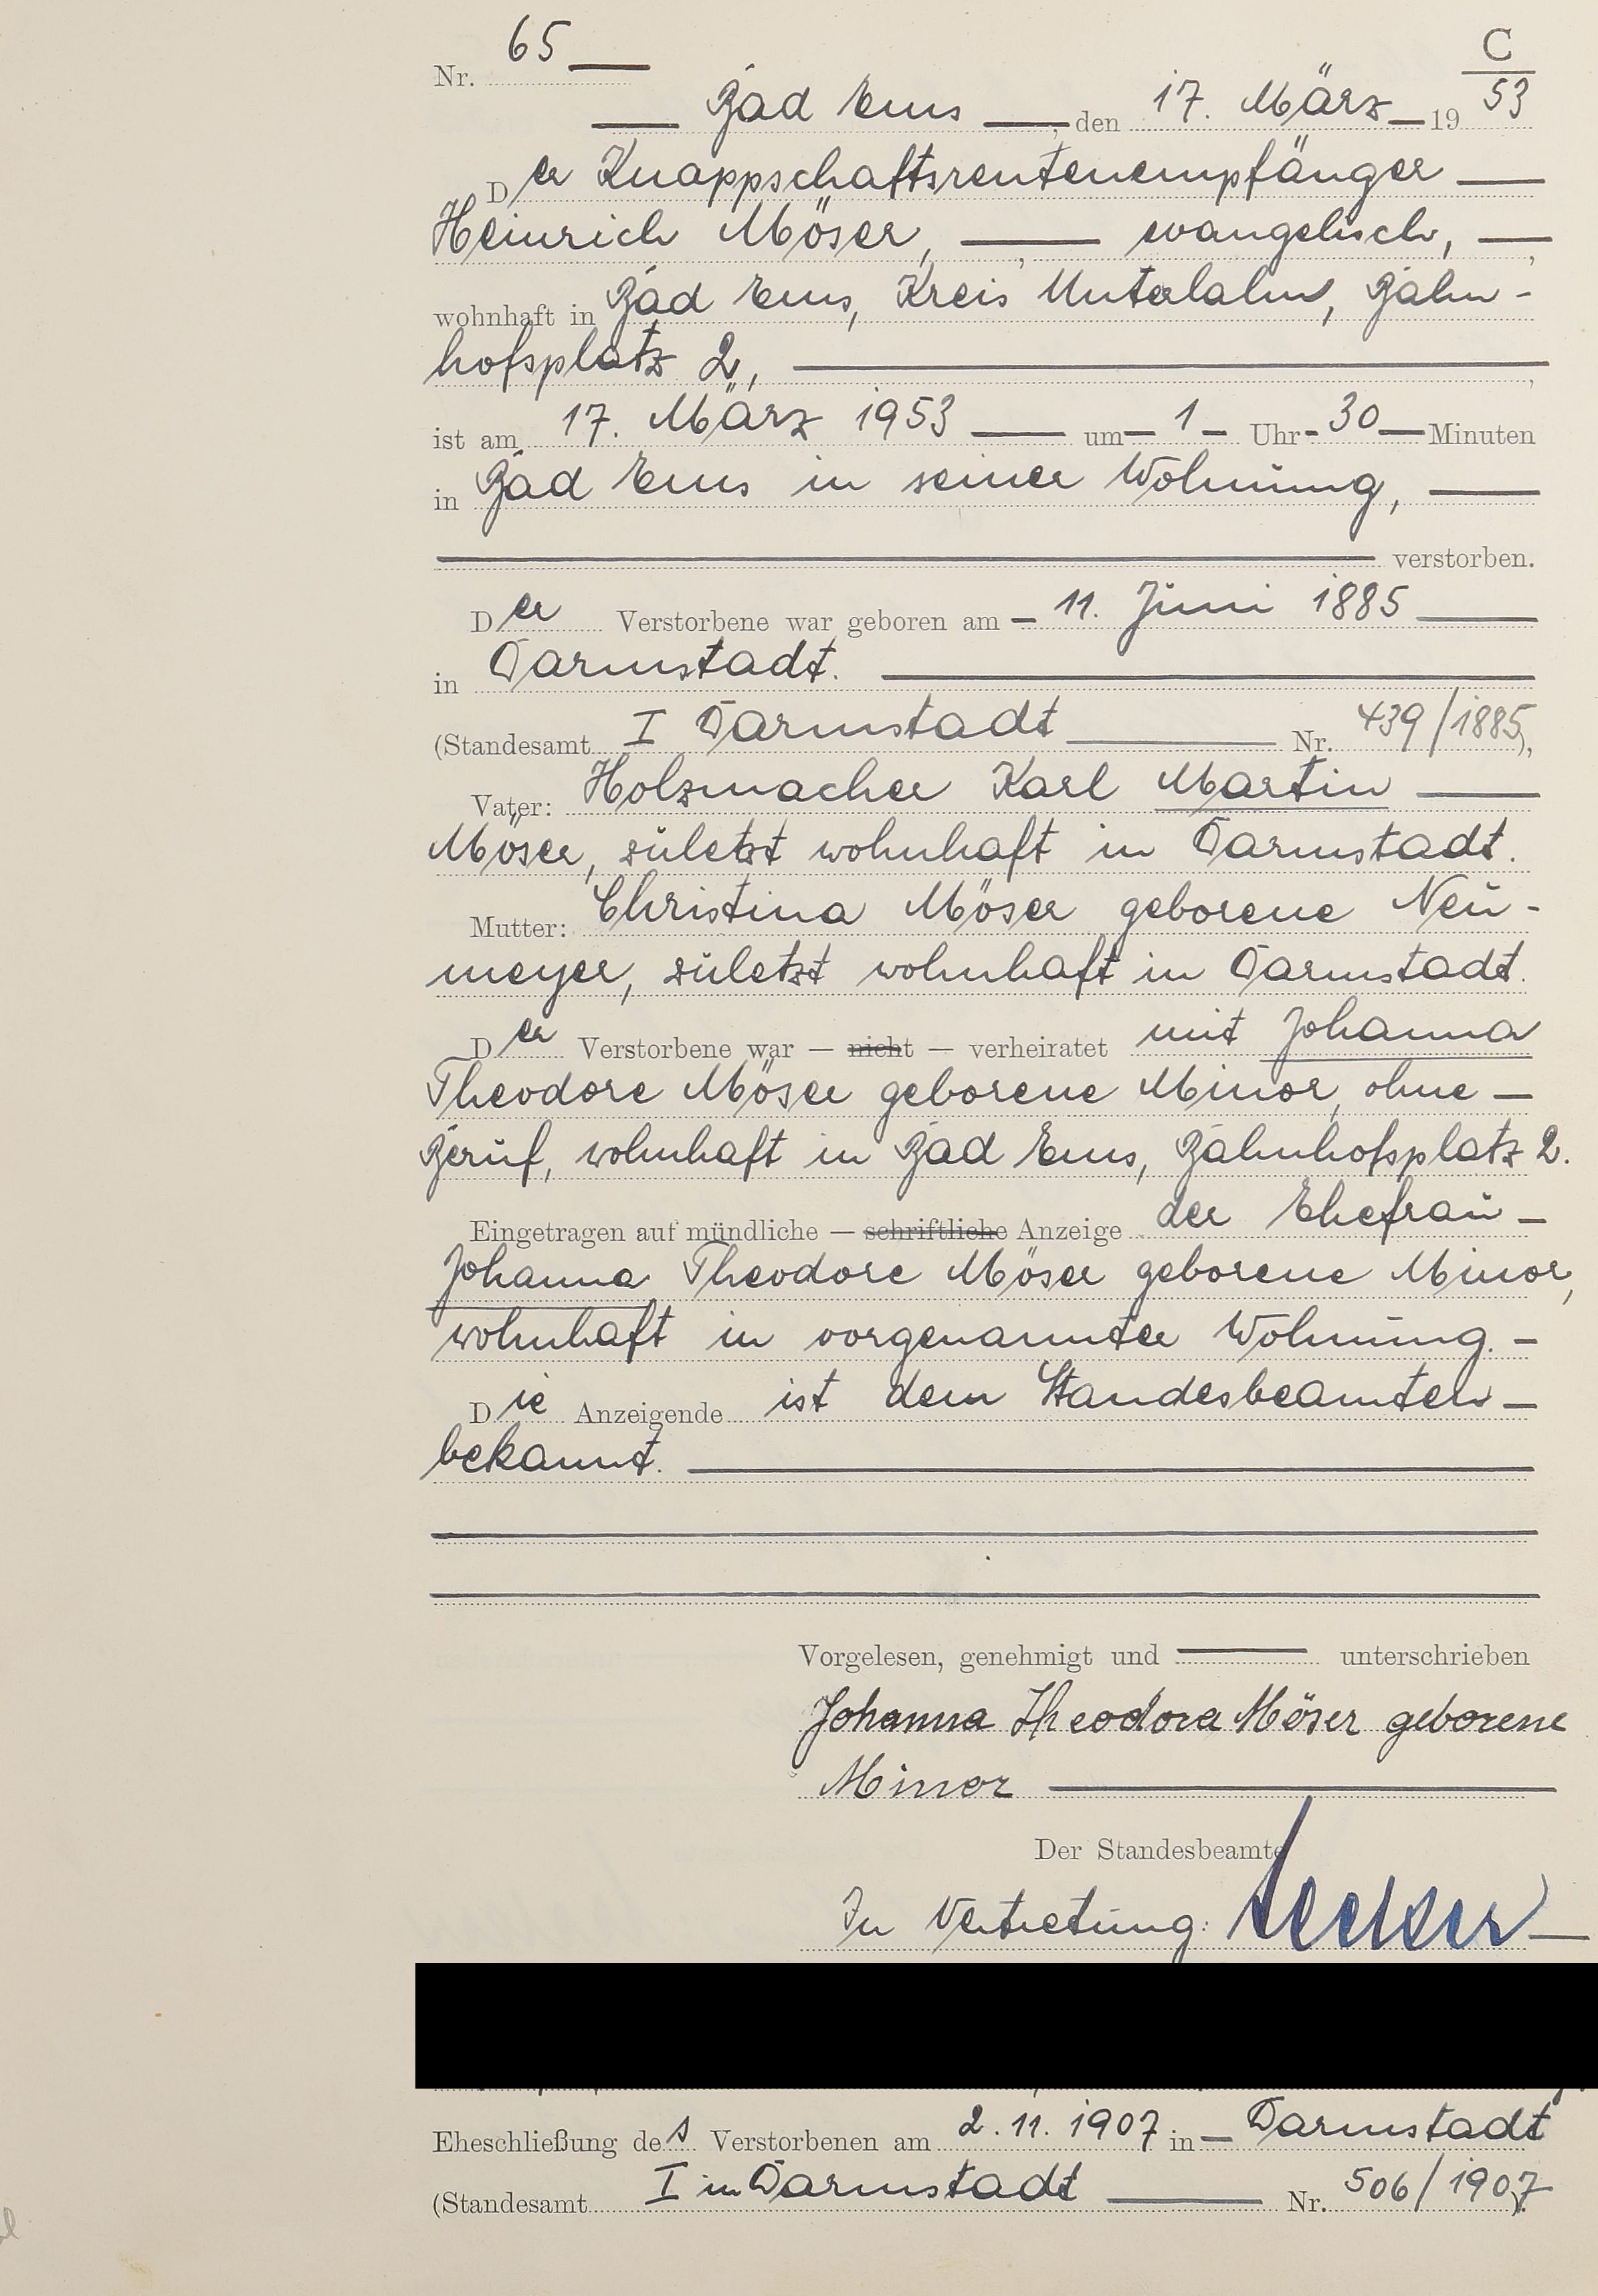 Nr. 65
C
Bad Ems, den 17. März 1953
Der Knappschaftsrentenempfänger
Heinrich Möser, evangelisch,
wohnhaft in Bad Ems, Kreis Unterlahn, Bahn-
hofsplatz 2,
ist am 17. März 1953 um 1 Uhr 30 Minuten
in Bad Ems in seiner Wohnung,
verstorben.
Der Verstorbene war geboren am 11. Juni 1885
in Darmstadt.
(Standesamt I Darmstadt Nr. 439/1885),
Vater: Holzmacher Karl Martin
Möser, zuletzt wohnhaft in Darmstadt.
Mutter: Christina Möser geborene Neu-
meyer, zuletzt wohnhaft in Darmstadt.
Der Verstorbene war — nicht — verheiratet mit Johanna
Theodore Möser geborene Minor, ohne
Beruf, wohnhaft in Bad Ems, Bahnhofsplatz 2.
Eingetragen auf mündliche — schriftliche Anzeige der Ehefrau
Johanna Theodore Möser geborene Minor,
wohnhaft in vorgenannter Wohnung.
Die Anzeigende ist dem Standesbeamten
bekannt.
Vorgelesen, genehmigt und unterschrieben
Johanna Theodora Möser geborene
Minor
Der Standesbeamte
In Vertretung:
Eheschließung des Verstorbenen am 2.11.1907 in Darmstadt
(Standesamt I in Darmstadt Nr. 506/1907).